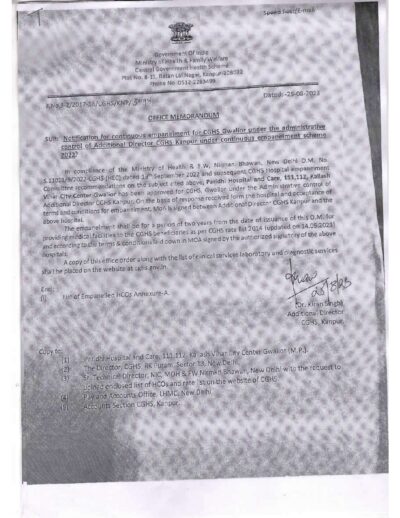 Speed Post/E-mail
Government Of India
Ministry of Health & Family Welfare
Central Government Health Scheme
Plot No. 8-11, Ratan Lal Nagar, Kanpur-208022
Phone No: 0512-2283499
Dated:-25-08-2023
OFFICE MEMORANDUM
SUB: Notification for continuous empanelment for CGHS Gwalior under the administrative
control of Additional Director, CGHS, Kanpur under continuous empanelment scheme
2022
In compliance of the Ministry of Health & F.W, Nirman Bhawan, New Delhi O.M. No.
September 2022 and subsequent CGHS hospital empanelment
Committee recommendations on the subject cited above, Paridhi Hospital and Care, 111,112, Kailash
Vihar City Center Gwalior has been approved for CGHS, Gwalior under the Admin strative control of
Additional Director CGHS, Kanpur. On the basis of response received form the hospital and acceptance of
terms and conditions for empanelment, MoA is signed between Additional Director CGHS Kanpur and the
above hospital.
The empanelment shall be for a period of two years from the date of issuance of this O.M, for
providing medical facilities to the CGHS beneficiaries as per CGHS rate list 2014
and according to the terms & conditions laid down in MOA signed by the authorized signatory of the above
hospitals.
A copy of this office order along with the list of clinical services laboratory and diagnostic services
shall be placed on the website at cghs.gov.in.
Encl:
(i) List of Empanelled HCOs Annexure-A.
Dr. Kiran Singh
Additional Director
CGHS, Kanpur.
Copy to:
(1) Paridhi Hospital and Care, 111,112, Kailash Vihar City Center Gwalior (M.P.).
(2) The Director, CGHS, RK Puram, Sector 13, New Delhi.
(3) Sr. Technical Director, NIC, MOH & FW Nirman Bhawan, New Delhi with the request to
upload enclosed list of HCOs and rate list on the website of CGHS
(4) Pay and Accounts Office, LHMC, New Delhi
Accounts Section CGHS, Kanpur.